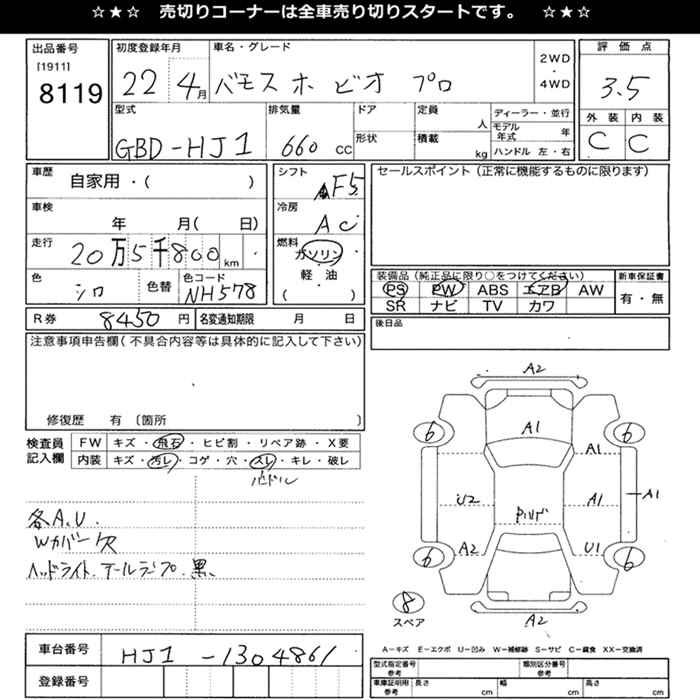 ☆★☆ 売切りコーナーは全車売り切りスタートです。 ☆★☆
出品番号
[1911]
8119
初度登録年月
22 4月
車名・グレード
バモス ホビオ プロ
2WD
・
4WD
評価点
3.5
外装 内装
C C
型式
GBD-HJ1
排気量
660 CC
ドア
形状
定員
人
積載
kg
ディーラー・並行
モデル年式 年
ハンドル 左・右
車歴
自家用・( )
シフト
AF5
車検
年 月( 日)
冷房
AC
走行
20万5千800km
燃料
ガソリン
軽・油
( )
色
シロ
色替
色コード
NH578
セールスポイント (正常に機能するものに限ります)
装備品 (純正品に限り○をつけてください)
PS PW ABS エアB AW
SR ナビ TV カワ
新車保証書
有・無
R券 8450円
名変通知期限 月 日
後日品
注意事項申告欄 (不具合内容等は具体的に記入して下さい)
修復歴 有 〔箇所 〕
検査員
記入欄
FW キズ・飛石・ヒビ割・リペア跡・X要
内装 キズ・汚レ・コゲ・穴・スレ・キレ・破レ
各A.U.
Wカバー欠
ヘッドライト.テールランプ.黒、
A2
6 6
A1
A1
U2
A1
A1
A2
U1
6 6
8
スペア
A2
A−キズ E−エクボ U−凹み W−補修跡 S−サビ C−腐食 XX−交換済
車台番号
HJ1-1304861
登録番号
型式指定番号
参考
類別区分番号
参考
車庫証明用
参考
長さ cm
幅 cm
高さ cm